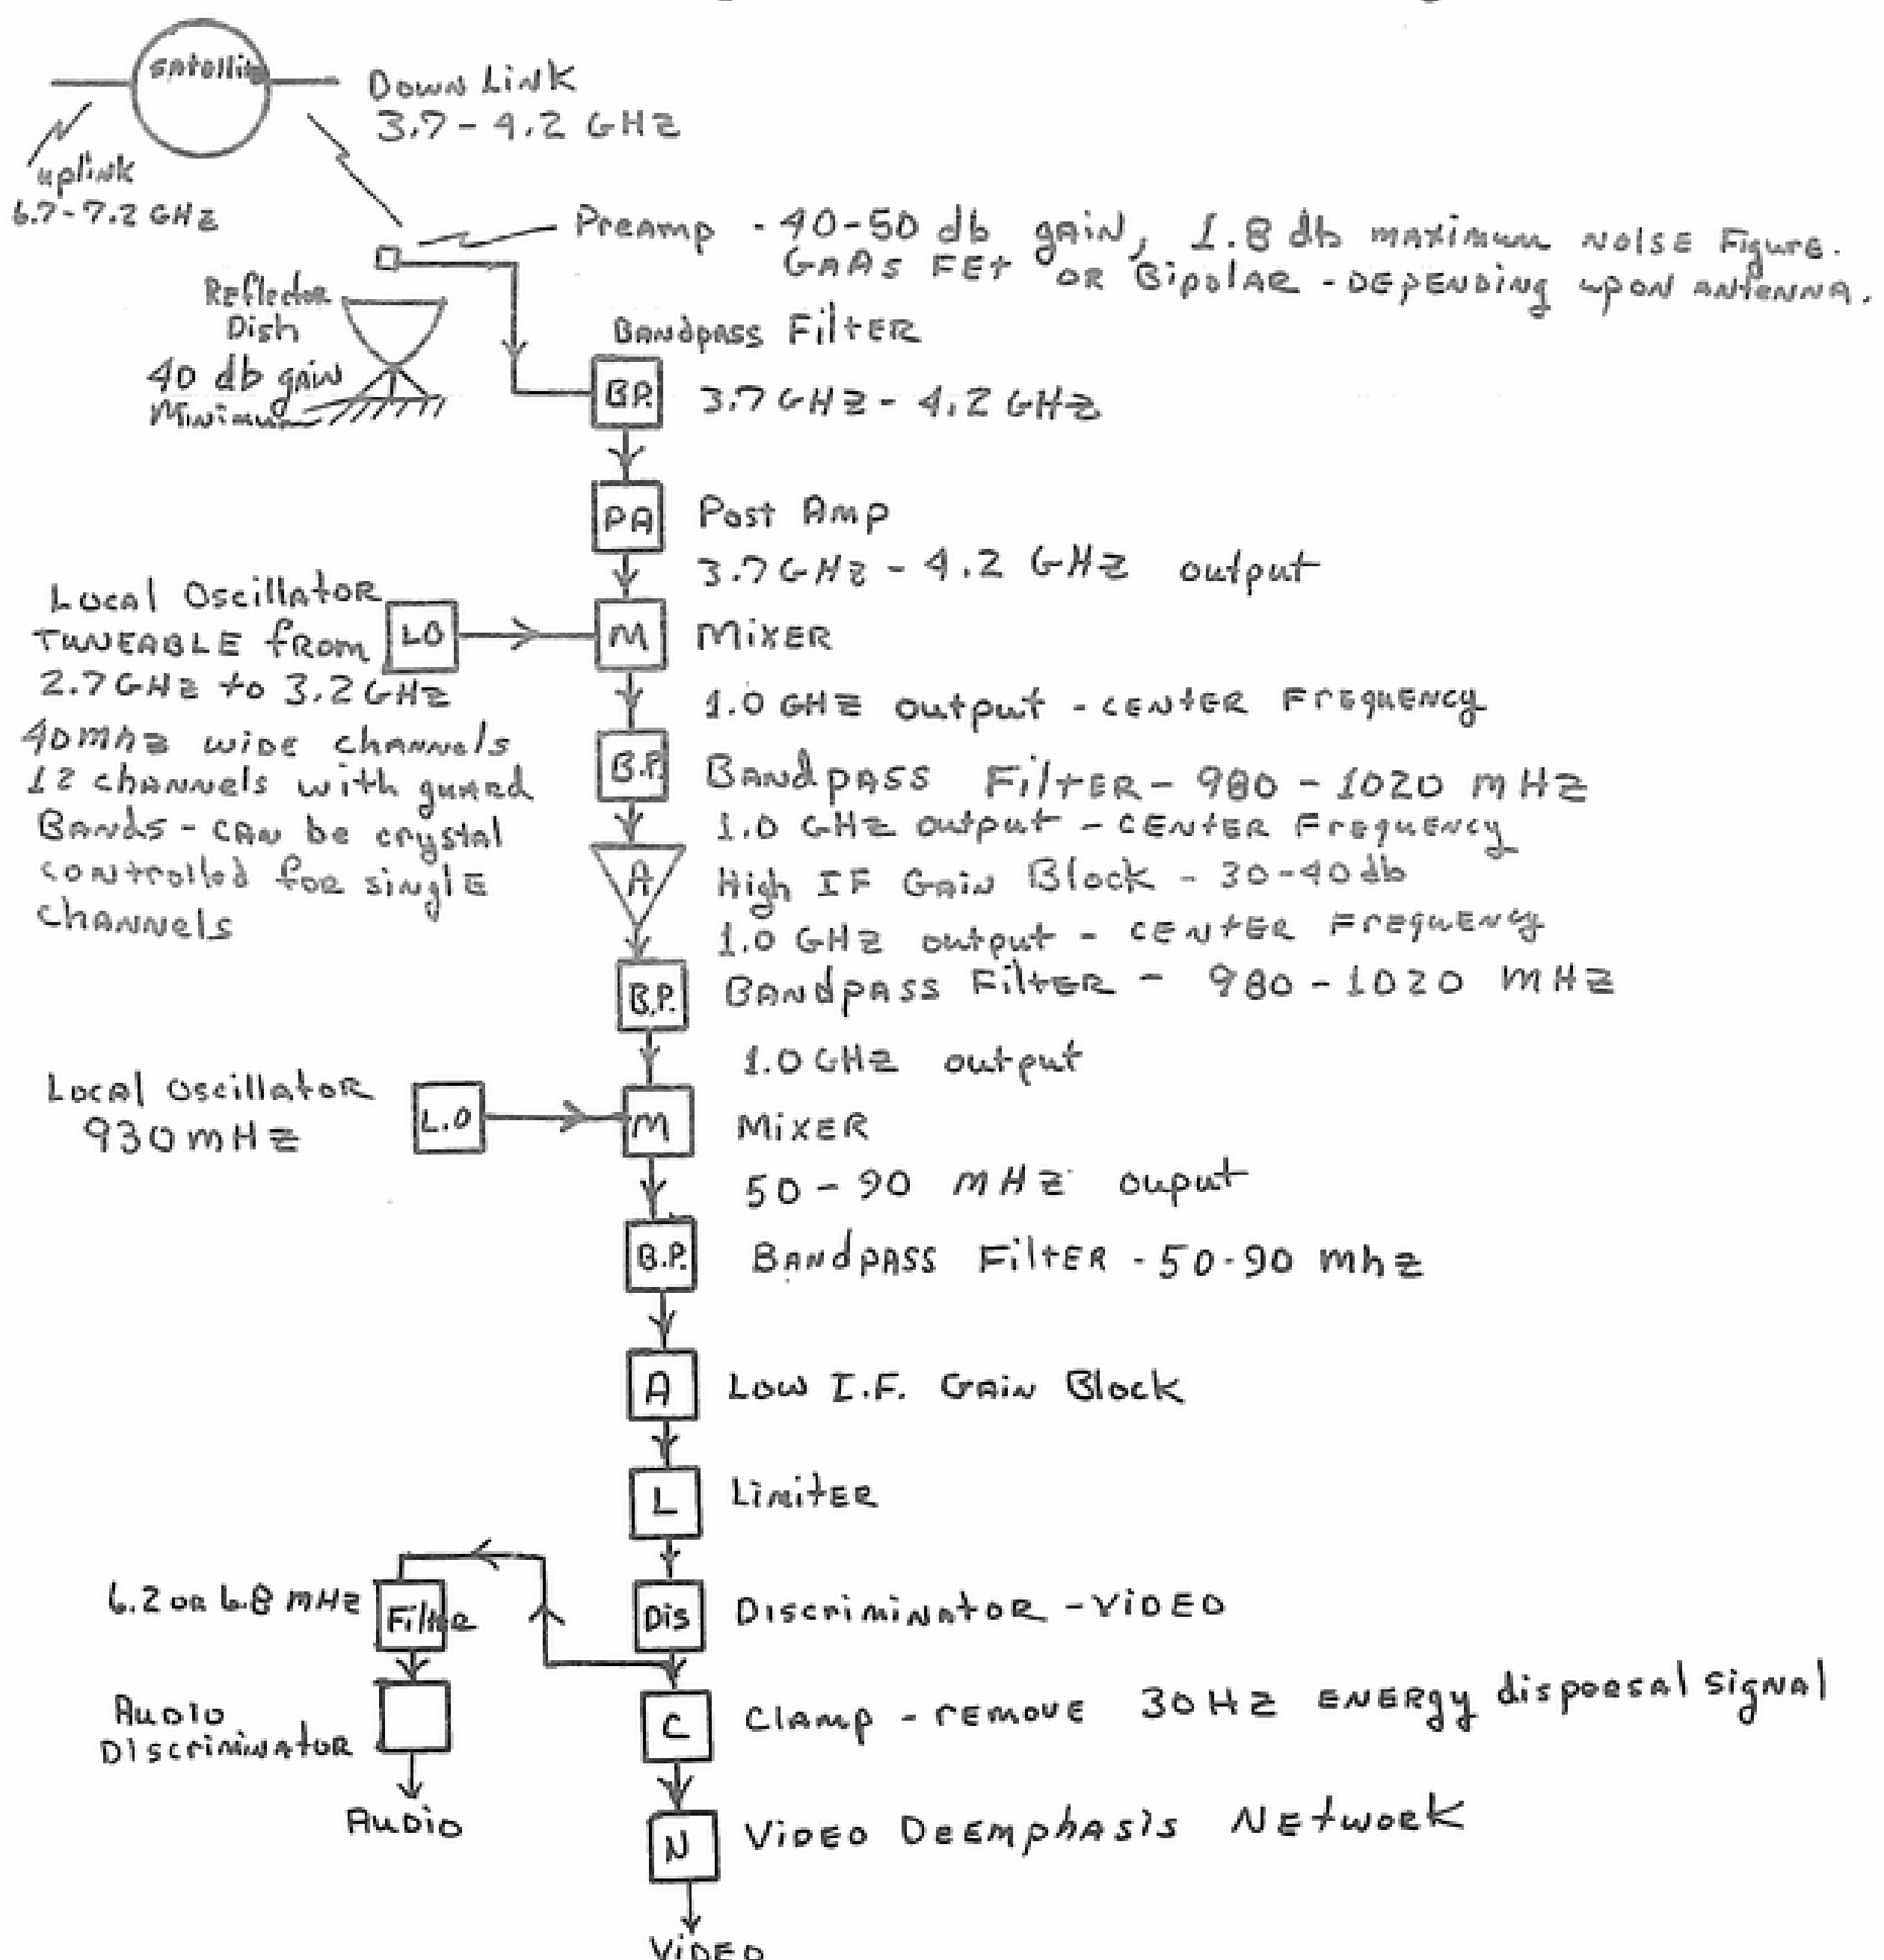 satellite
Down Link
3.7 - 4.2 GHz
uplink
6.7 - 7.2 GHz
Preamp - 40-50 db gain, 1.8 db maximum noise Figure.
GaAs FET or Bipolar - depending upon antenna.
Reflector
Dish
40 db gain
Minimum
Bandpass Filter
B.P. 3.7 GHz - 4.2 GHz
PA Post Amp
3.7 GHz - 4.2 GHz output
Local Oscillator
tuneable from
2.7 GHz to 3.2 GHz
40 mhz wide channels
12 channels with guard
Bands - can be crystal
controlled for single
channels
LO
M Mixer
1.0 GHz output - center Frequency
B.P. Bandpass Filter - 980 - 1020 mHz
1.0 GHz output - center Frequency
A High IF Gain Block - 30-40 db
1.0 GHz output - center Frequency
B.P. Bandpass Filter - 980 - 1020 mHz
1.0 GHz output
Local Oscillator
930 mHz
L.O
M Mixer
50 - 90 mHz ouput
B.P. Bandpass Filter - 50-90 mhz
A Low I.F. Gain Block
L Limiter
Dis Discriminator - Video
6.2 or 6.8 mHz
Filter
C Clamp - remove 30 Hz energy dispoesal signal
Audio
Discriminator
Audio
N Video Deemphasis Network
Video